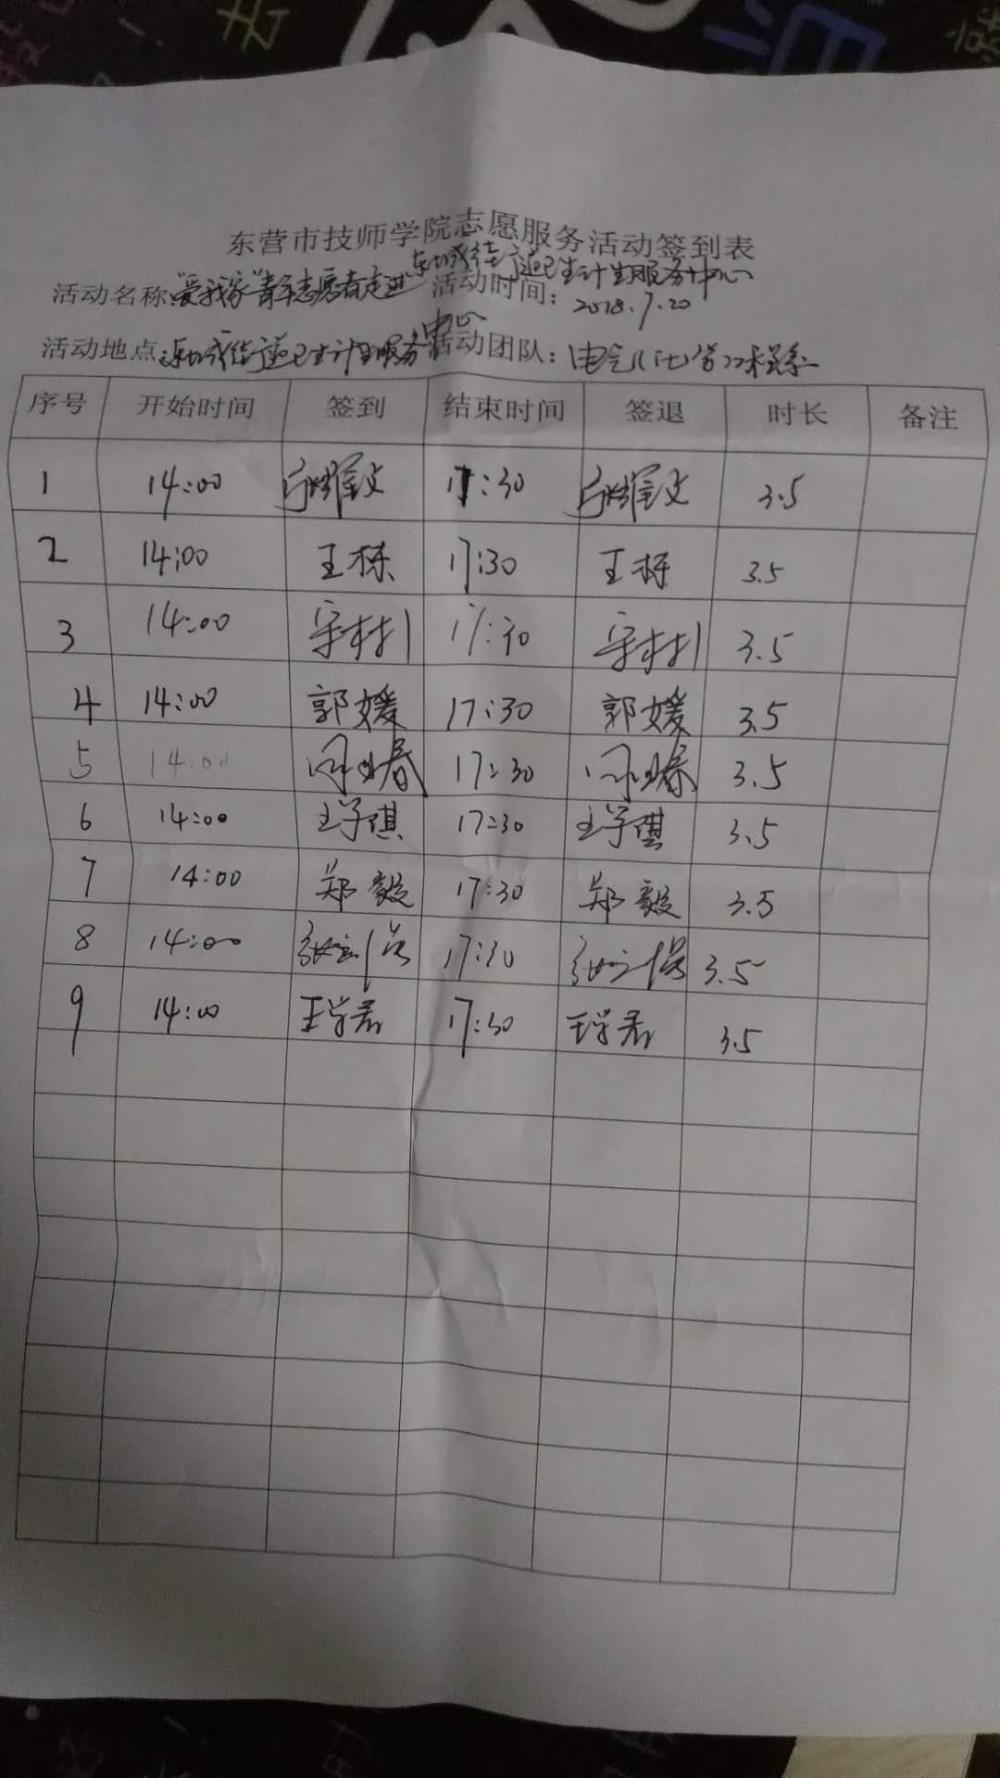 东营市技师学院志愿服务活动签到表
活动名称:"爱我家"青年志愿者走进东城街道卫生计生服务中心 活动时间: 2018.7.20
活动地点:东城街道卫生计生服务中心 活动团队: 电气
序号 开始时间 签到 结束时间 签退 时长 备注
1 14:00 17:30 3.5
2 14:00 王栋 17:30 王栋 3.5
3 14:00 17:30 3.5
4 14:00 郭媛 17:30 郭媛 3.5
5 14:00 17:30 3.5
6 14:00 王学琪 17:30 王学琪 3.5
7 14:00 郑毅 17:30 郑毅 3.5
8 14:00 17:30 3.5
9 14:00 王学君 17:30 王学君 3.5